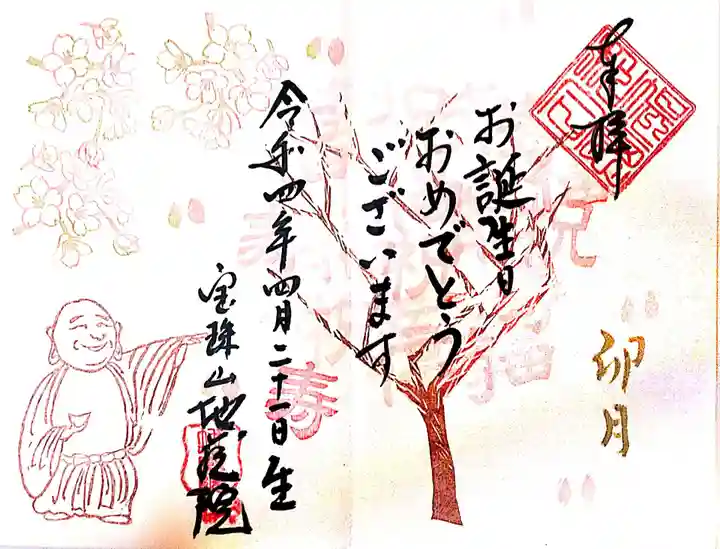 奉拝
卯月
お誕生日
おめでとう
ございます
令和四年四月二十一日生
寿
宝珠山地蔵院